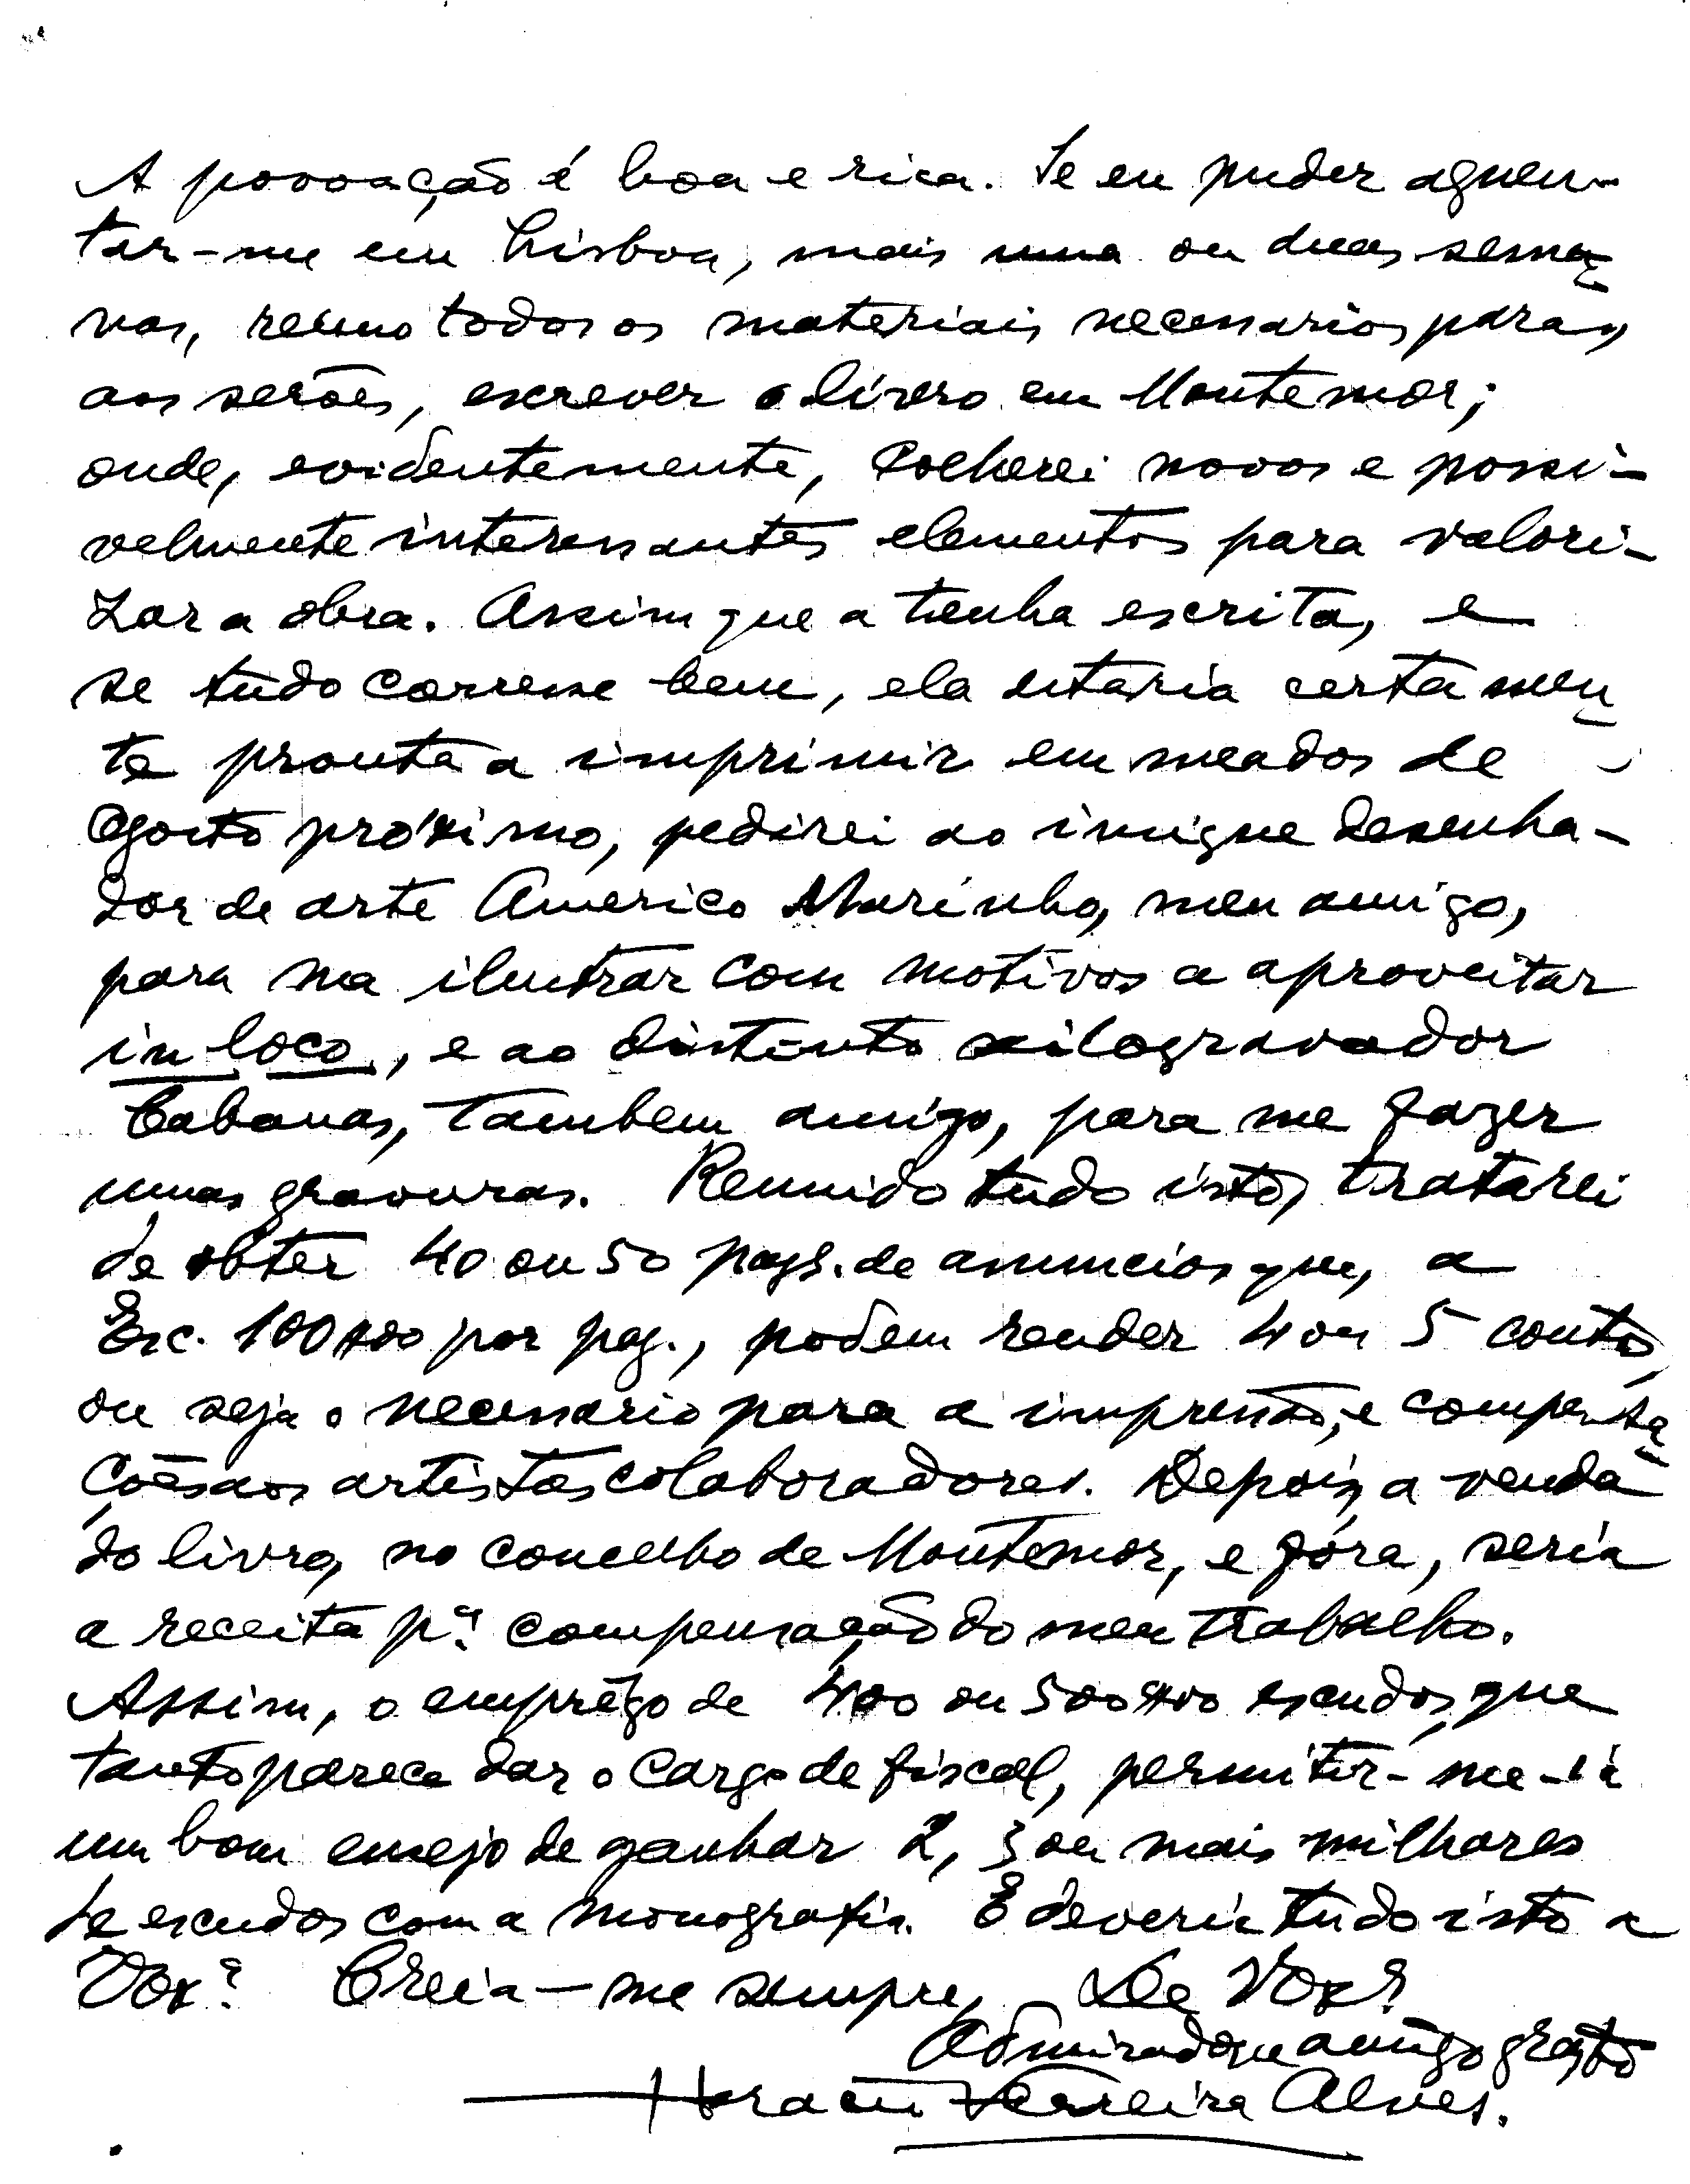 A povoação é boa e rica. Se eu puder aguen-
tar-me em Lisboa, mais uma ou duas sema-
nas, reuno todos os materiais necessarios para,
aos serões, escrever o livro em Montemor;
onde, evidentemente, colherei novos e possi-
velmente interessantes elementos para valori-
zar a obra. Assim que a tenha escrita, e
se tudo corresse bem, ela estaria certamen-
te pronta a imprimir em meados de
Agosto próximo, pedirei ao insigne desenha-
dor de arte Americo Marinho, meu amigo,
para ma ilustrar com motivos a aproveitar
in loco, e ao distinto xilogravador
Cabanas, tambem amigo, para me fazer
umas gravuras. Reunido tudo isto, tratarei
de obter 40 ou 50 pags. de anuncios que, a
Esc. 100$00 por pag., podem render 4 ou 5 contos,
ou seja o necessario para a impressão, e compensa-
ções aos artistas colaboradores. Depois, a venda
do livro, no concelho de Montemor, e fóra, seria
a receita pª compensação do meu trabalho.
Assim, o emprêgo de 400 ou 500$00 escudos, que
tanto parece dar o cargo de fiscal, permitir-me-iá
um bom ensejo de ganhar 2, 3 ou mais milhares
de escudos com a monografia. E deveria tudo isto a
Voxª Creia-me sempre, De Voxª
Admirador e amigo grato
Horacio Ferreira Alves.